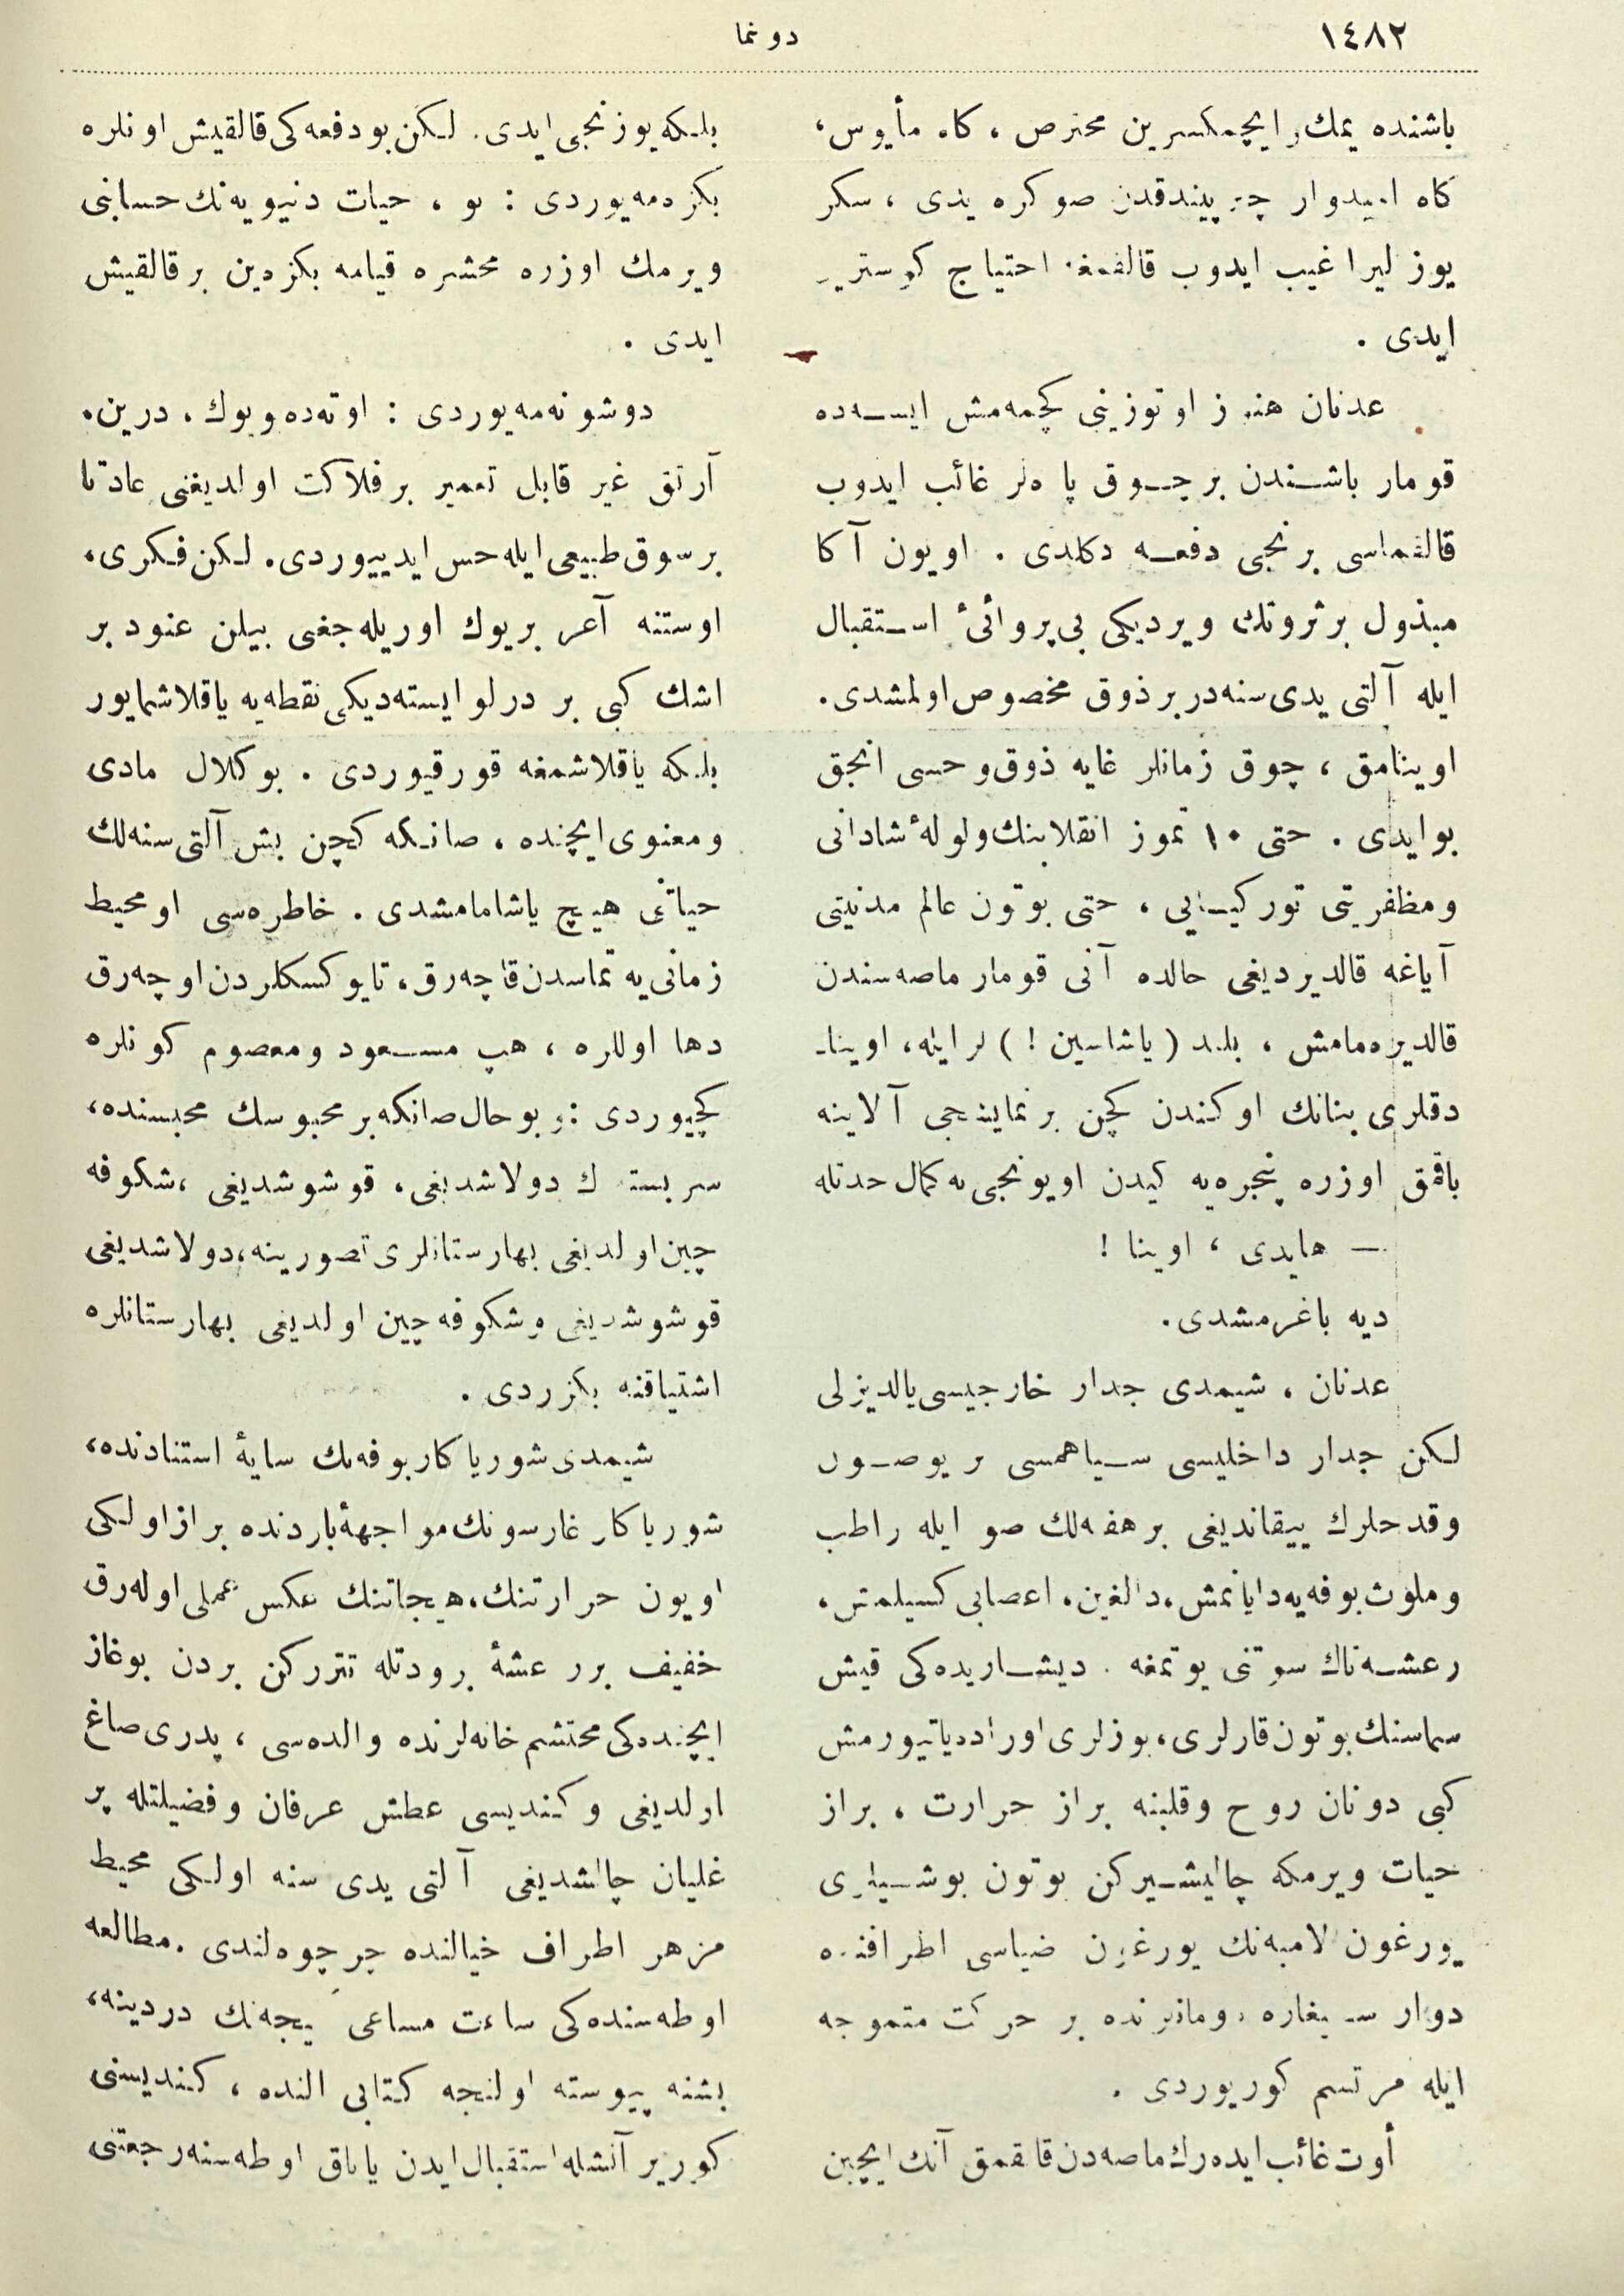 ١٤٨٢
دونما
باشنده يمك، ايچمكسزين محترص، كاه مأيوس،
كاه اميدوار چيرپيندقدن صوكره يدى، سكز
يوز ليرا غيب ايدوب قالقمغه احتياج كوسترير
ايدى.
عدنان هنوز اوتوزينى كچمه‌مش ايسه‌ده
قومار باشندن بر چوق پاره‌لر غائب ايدوب
قالقماسى برنجى دفعه دكلدى. اويون آكا
مبذول بر ثروتك ويرديكى بى‌پروائى استقبال
ايله آلتى يدى سنه‌در بر ذوق مخصوص اولمشدى.
اوينامق، چوق زمانلر غايه ذوق و حسى انجق
بو ايدى. حتى ١٠ تموز انقلابنك ولوله‌ٔ شادانى
و مظفريتى توركيايى، حتى بوتون عالم مدنيتى
آياغه قالديرديغى حالده آنى قومار ماصه‌سندن
قالديره‌مامش، بلند (ياشاسين!) لر ايله، اوينا-
دقلرى بنانك اوكندن كچن بر نمايشجى آلاينه
باقمق اوزره پنجره‌يه كيدن اويونجى‌يه كمال حدتله
— هايدى، اوينا!
ديه باغرمشدى.
عدنان، شيمدى جدار خارجيسى يالديزلى
لكن جدار داخليسى سياهمسى بر يوصون
و قدحلرك ييقانديغى بر هفته‌لك صو ايله راطب
و ملوث بوفه‌يه دايانمش، دالغين، اعصابى كسيلمش،
رعشه‌ناك سوتنى يوتمغه. ديشاريده‌كى قيش
سماسنك بوتون قارلرى، بوزلرى اوراده ياتيورمش
كبى دونان روح و قلبنه براز حرارت، براز
حيات ويرمكه چاليشيركن بوتون بو شيلرى
يورغون لامبه‌نك يورغون ضياسى اطرافنده
دوار سيغاره دومانلرنده بر حركت متموجه
ايله مرتسم كوريوردى.
أوت غائب ايده‌رك ماصه‌دن قالقمق آنك ايچين
بلكه يوزنجى ايدى. لكن بو دفعه‌كى قالقيش اونلره
بكزه‌مه‌يوردى: بو، حيات دنيويه‌نك حسابنى
ويرمك اوزره محشره قيامه بكزه‌ين بر قالقيش
ايدى.
دوشونه‌مه‌يوردى: اوته‌ده بويوك، درين.
آرتق غير قابل تعمير بر فلاكت اولديغنى عادتا
بر سوق طبيعى ايله حس ايدييوردى. لكن فكرى،
اوستنه آغر بر يوك اوريله‌جغنى بيلن عنود بر
اشك كبى بر درلو ايسته‌ديكى نقطه‌يه ياقلاشمايور
بلكه ياقلاشمغه قورقيوردى. بو كلال مادى
و معنوى ايچنده، صانكه كچن بش آلتى سنه‌لك
حياتى هيچ ياشامامشدى. خاطره‌سى او محيط
زمانى‌يه تماسدن قاچه‌رق، تا يوكسكلردن اوچه‌رق
دها اوللره، هپ مسعود و معصوم كونلره
كچيوردى: بو حال صانكه بر محبوسك محبسنده،
سربستـ ك دولاشديغى، قوشوشديغى، شكوفه
چين اولديغى بهارستانلرى تصورينه، دولاشديغى
قوشوشديغى و شكوفه چين اولديغى بهارستانلره
اشتياقنه بكزردى.
شيمدى شو رياكار بوفه‌نك سايه‌ٔ استنادنده،
شو رياكار غارسونك مواجهه‌ٔ باردنده براز اولكى
اويون حرارتنك، هيجاننك عكس عملى اوله‌رق
خفيف بر رعشه‌ٔ برودتله تتررکن بردن بوغاز
ايچنده‌كى محتشم خانه‌لرنده والده‌سى، پدرى صاغ
اولديغى و كنديسى عطش عرفان و فضيلتله پر
غليان چالشديغى آلتى يدى سنه اولكى محيط
مزهر اطراف خيالنده چرچوه‌لندى. مطالعه
اوطه‌سنده‌كى ساعت مساعى كيجه‌نك دردينه،
بشنه پيوسته اولنجه كتابى النده، كنديسنى
كورير آتشله استقبال ايدن ياتاق اوطه‌سنه رجعتنى